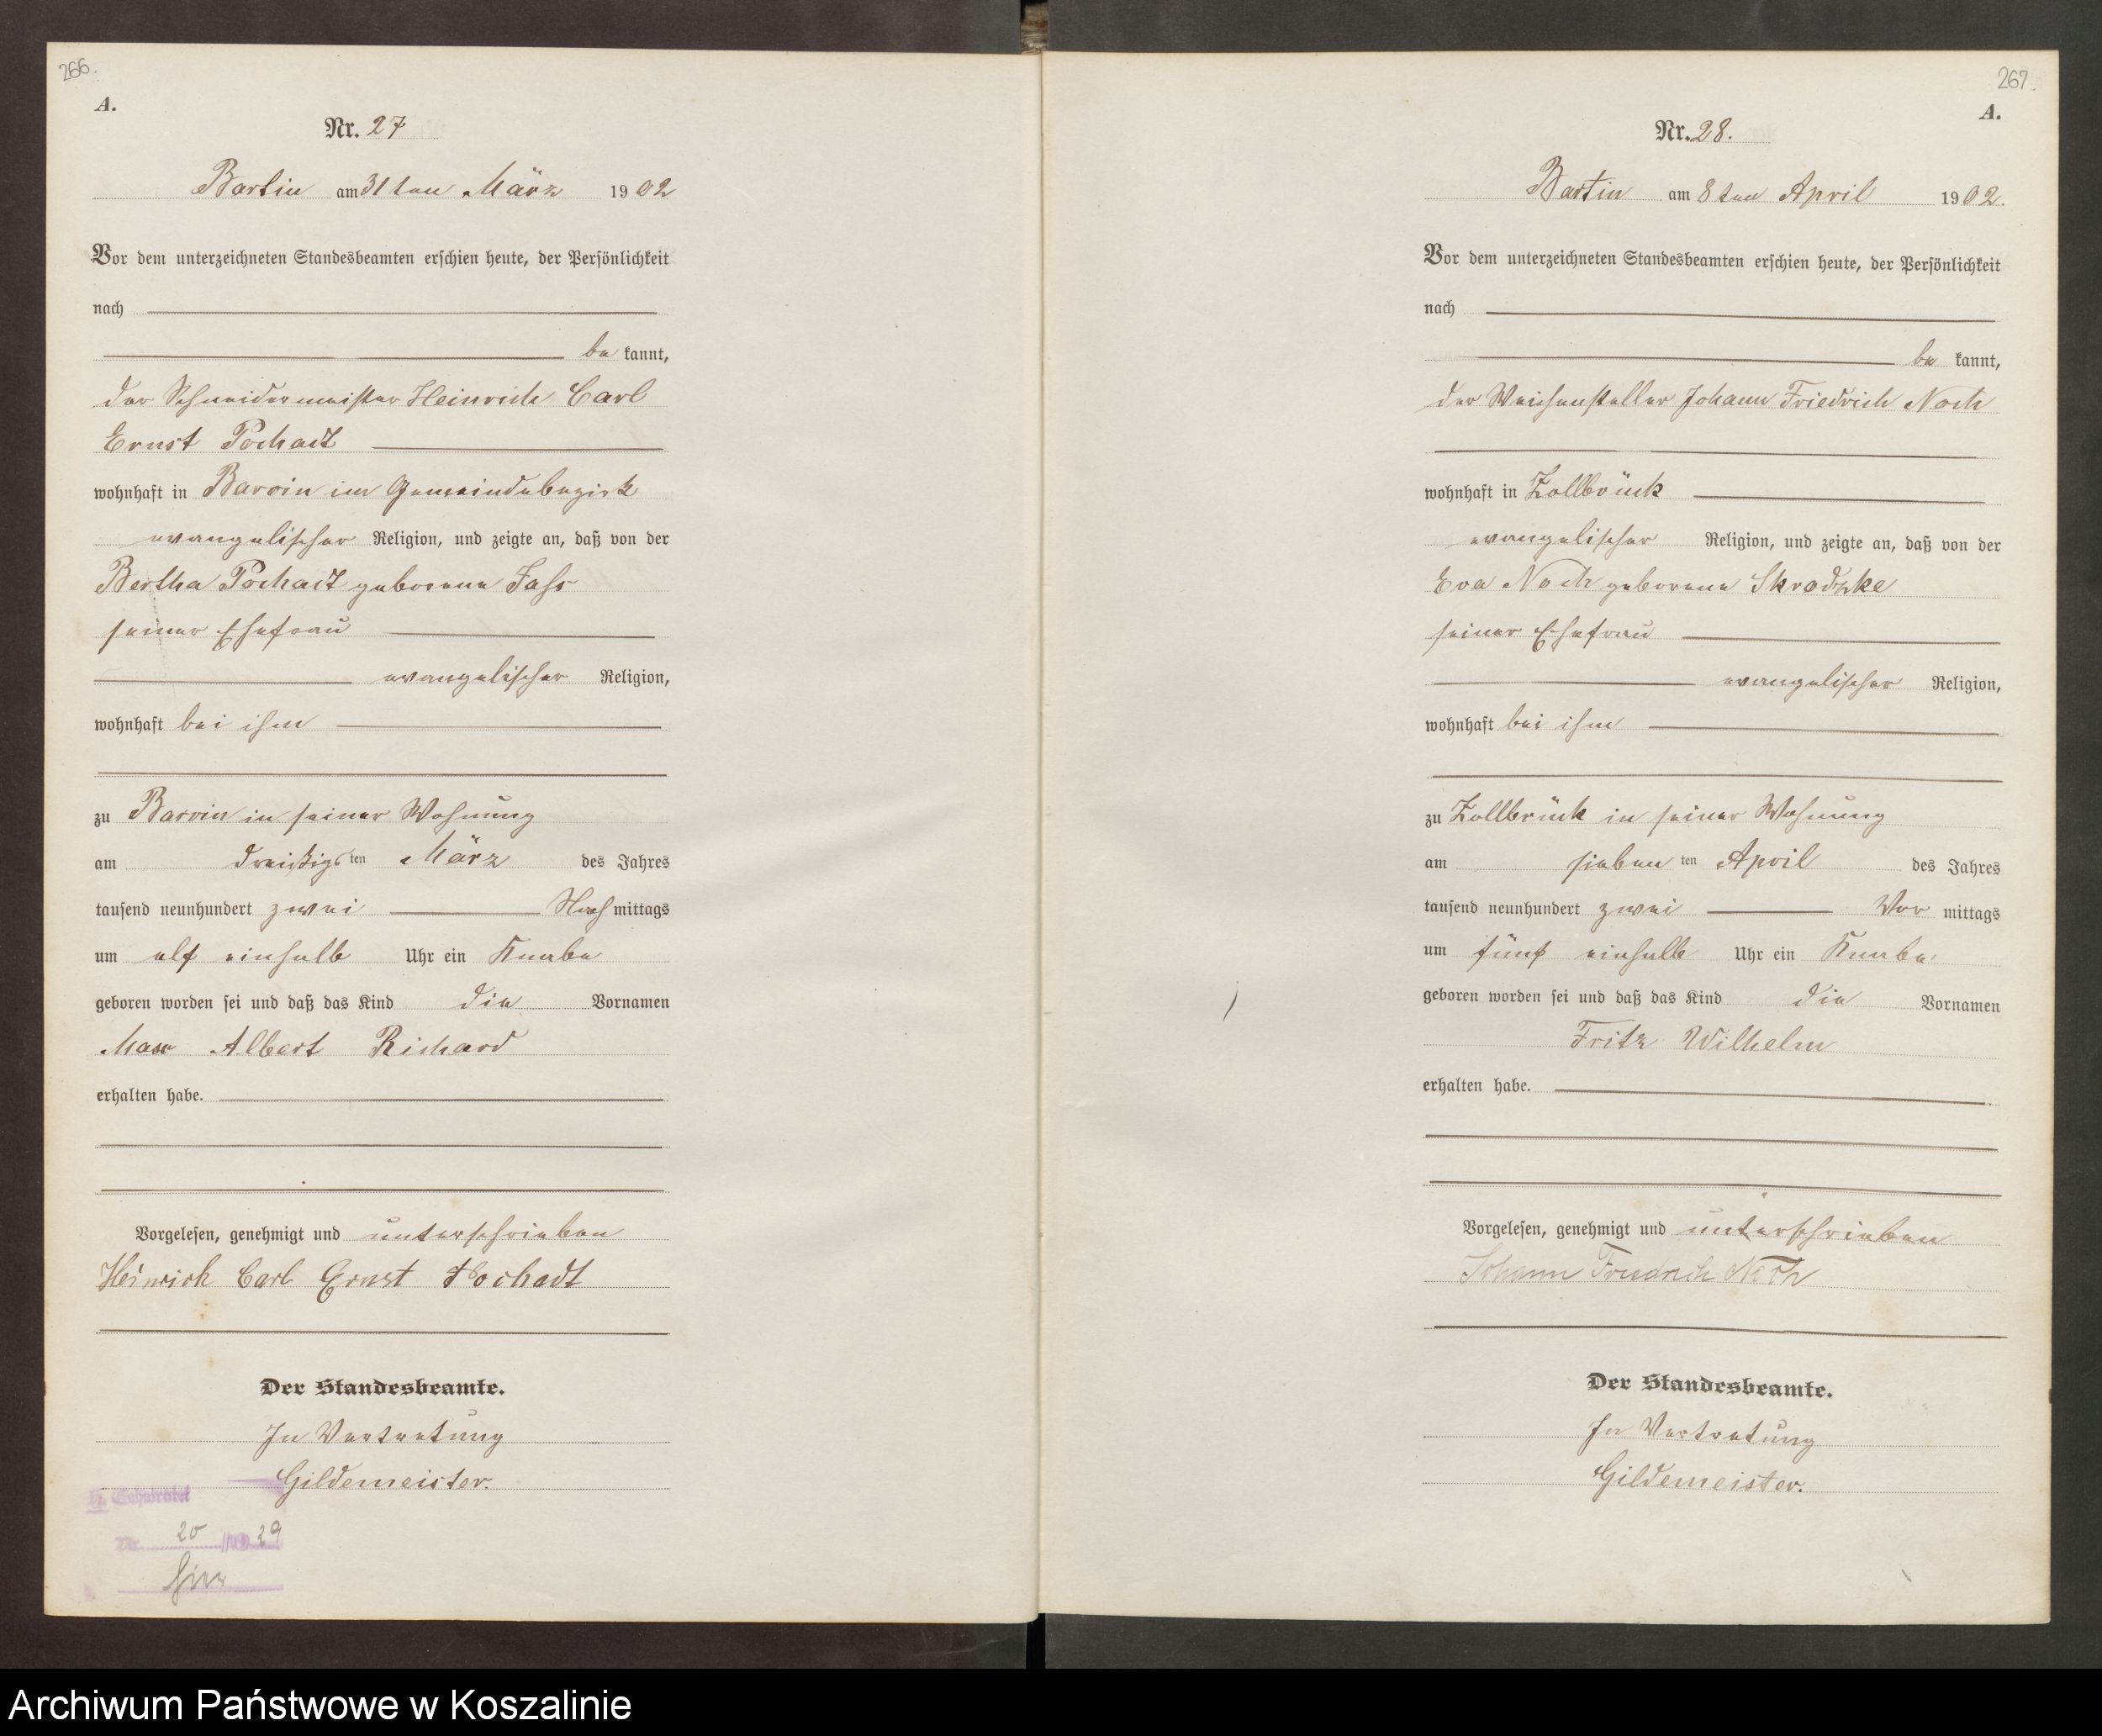 266.
A.
Nr. 27
Bartin am 31ten März 1902
Vor dem unterzeichneten Standesbeamten erschien heute, der Persönlichkeit
nach
be kannt,
der Schneidermeister Heinrich Carl
Ernst Pochadt
wohnhaft in Barvin im Gemeindebezirk
evangelischer Religion, und zeigte an, daß von der
Bertha Pochadt geborene Fass
seiner Ehefrau
evangelischer Religion,
wohnhaft bei ihm
zu Barvin in seiner Wohnung
am dreißigsten März des Jahres
tausend neunhundert zwei Nach mittags
um elf einhalb Uhr ein Knabe
geboren worden sei und daß das Kind die Vornamen
Max Albert Richard
erhalten habe.
Vorgelesen, genehmigt und unterschrieben
Heinrich Carl Ernst Pochadt
Der Standesbeamte.
In Vertretung
Gildemeister.
20 29
267.
A.
Nr. 28.
Bartin am 8ten April 1902.
Vor dem unterzeichneten Standesbeamten erschien heute, der Persönlichkeit
nach
be kannt,
der Weichensteller Johann Friedrich Noch
wohnhaft in Zollbrück
evangelischer Religion, und zeigte an, daß von der
Eva Noch geborene Skrodzke
seiner Ehefrau
evangelischer Religion,
wohnhaft bei ihm
zu Zollbrück in seiner Wohnung
am sieben ten April des Jahres
tausend neunhundert zwei Vor mittags
um fünf einhalb Uhr ein Knabe
geboren worden sei und daß das Kind die Vornamen
Fritz Wilhelm
erhalten habe.
Vorgelesen, genehmigt und unterschrieben
Johann Friedrich Noch
Der Standesbeamte.
In Vertretung
Gildemeister.
Archiwum Państwowe w Koszalinie